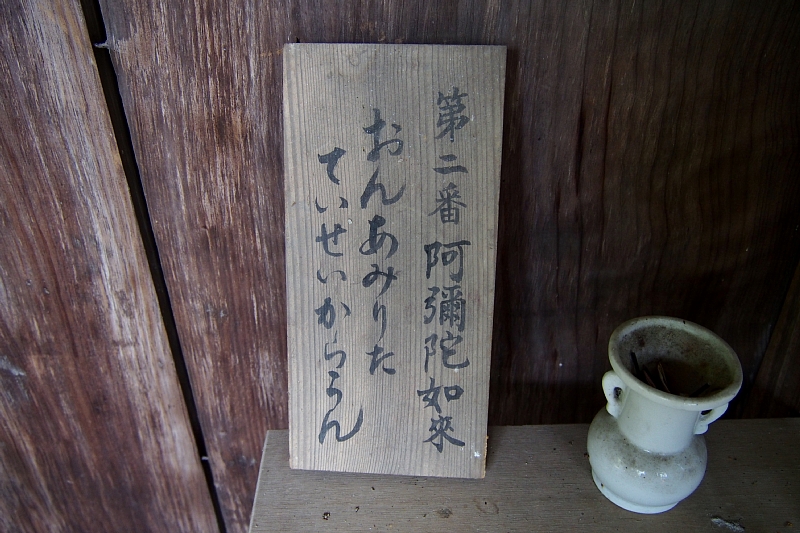 第二番阿彌陀如來
おんあみりた
ていせいからうん